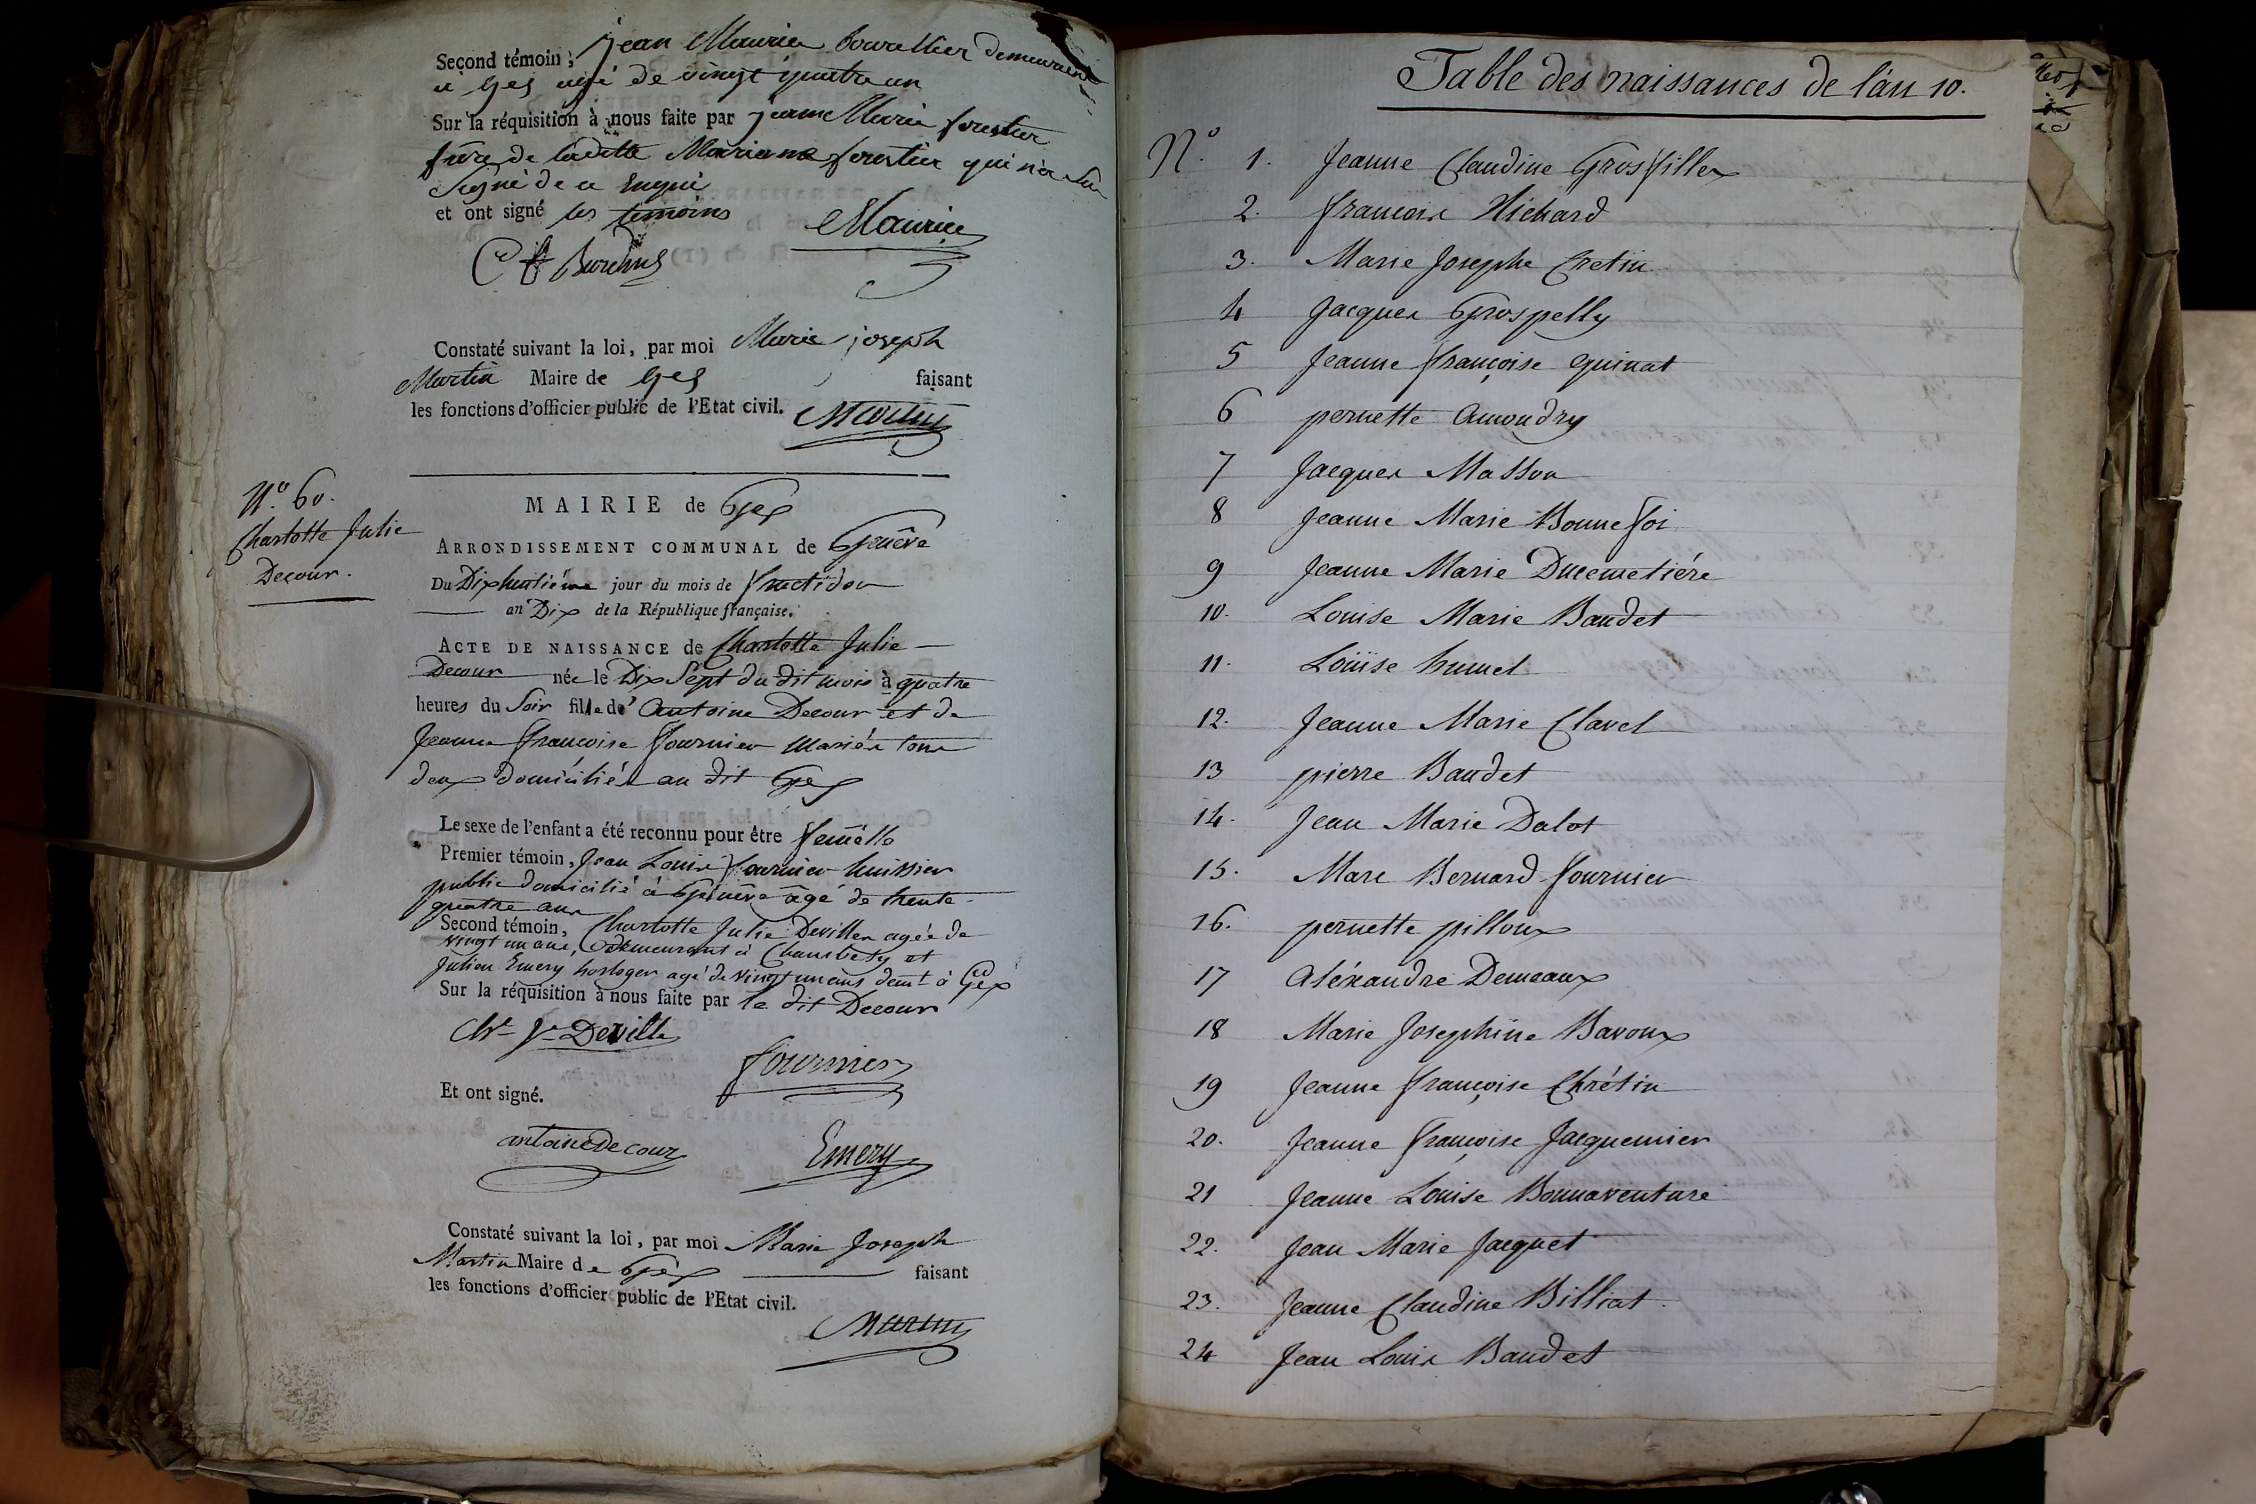 Second témoin, jean Maurice bourellier demeurant
à Gex agé de vingt quatre an
Sur la réquisition à nous faite par jeane Marie forestier
frère de laditte Mariane forestier qui n'a Su
Signé de ce Enquis
et ont signé les temoins
Maurice
Constaté suivant la loi, par moi Marie joseph
Martin Maire de Gex faisant
les fonctions d'officier public de l'Etat civil. Martin
N.º 60.
Charlotte Julie
Decour.
MAIRIE de Gex
ARRONDISSEMENT COMMUNAL de Genêve
Du Dixhuitième jour du mois de fructidor
an Dix de la République française.
ACTE DE NAISSANCE de Charlotte Julie
Decour née le Dix Sept du dit mois à quatre
heures du Soir fille de Antoine Decour et de
Jeanne françoise fournier Mariés tous
deux domiciliés au dit Gex
Le sexe de l'enfant a été reconnu pour être femelle
Premier témoin, Jean Louis fournier huissier
public domicilié à Genêve agé de trente
quatre ans
Second témoin, Charlotte Julie Deville agée de
vingt un ans, demeurant à Chambery et
Julien Emery horloger agé de vingt un ans demt à Gex
Sur la réquisition à nous faite par le dit Decour
Chte Jie Deville
fournier
Et ont signé.
antoine Decour
Emery
Constaté suivant la loi, par moi Marie Joseph
Martin Maire de Gex faisant
les fonctions d'officier public de l'Etat civil.
Martin
Table des naissances de l'an 10.
N.º 1. Jeanne Claudine Grosfillex
2. françois Richard
3. Marie Josephe Cretin
4 Jacques Grospelly
5 Jeanne françoise Guinat
6 pernette Amoudry
7 Jacques Masson
8 Jeanne Marie Bonnefoi
9 Jeanne Marie Ducemetiére
10. Louise Marie Baudet
11. Louise humel
12. Jeanne Marie Clavel
13 pierre Baudet
14. Jean Marie Dalot
15. Marc Bernard fournier
16. pernette pilloux
17 Aléxandre Demeaux
18 Marie Josephine Bavoux
19 Jeanne françoise Chrétin
20. Jeanne françoise Jacquemier
21 Jeanne Louise Bonnaventure
22. Jean Marie Jacquet
23. Jeanne Claudine Billiat.
24 Jean Louis Baudet